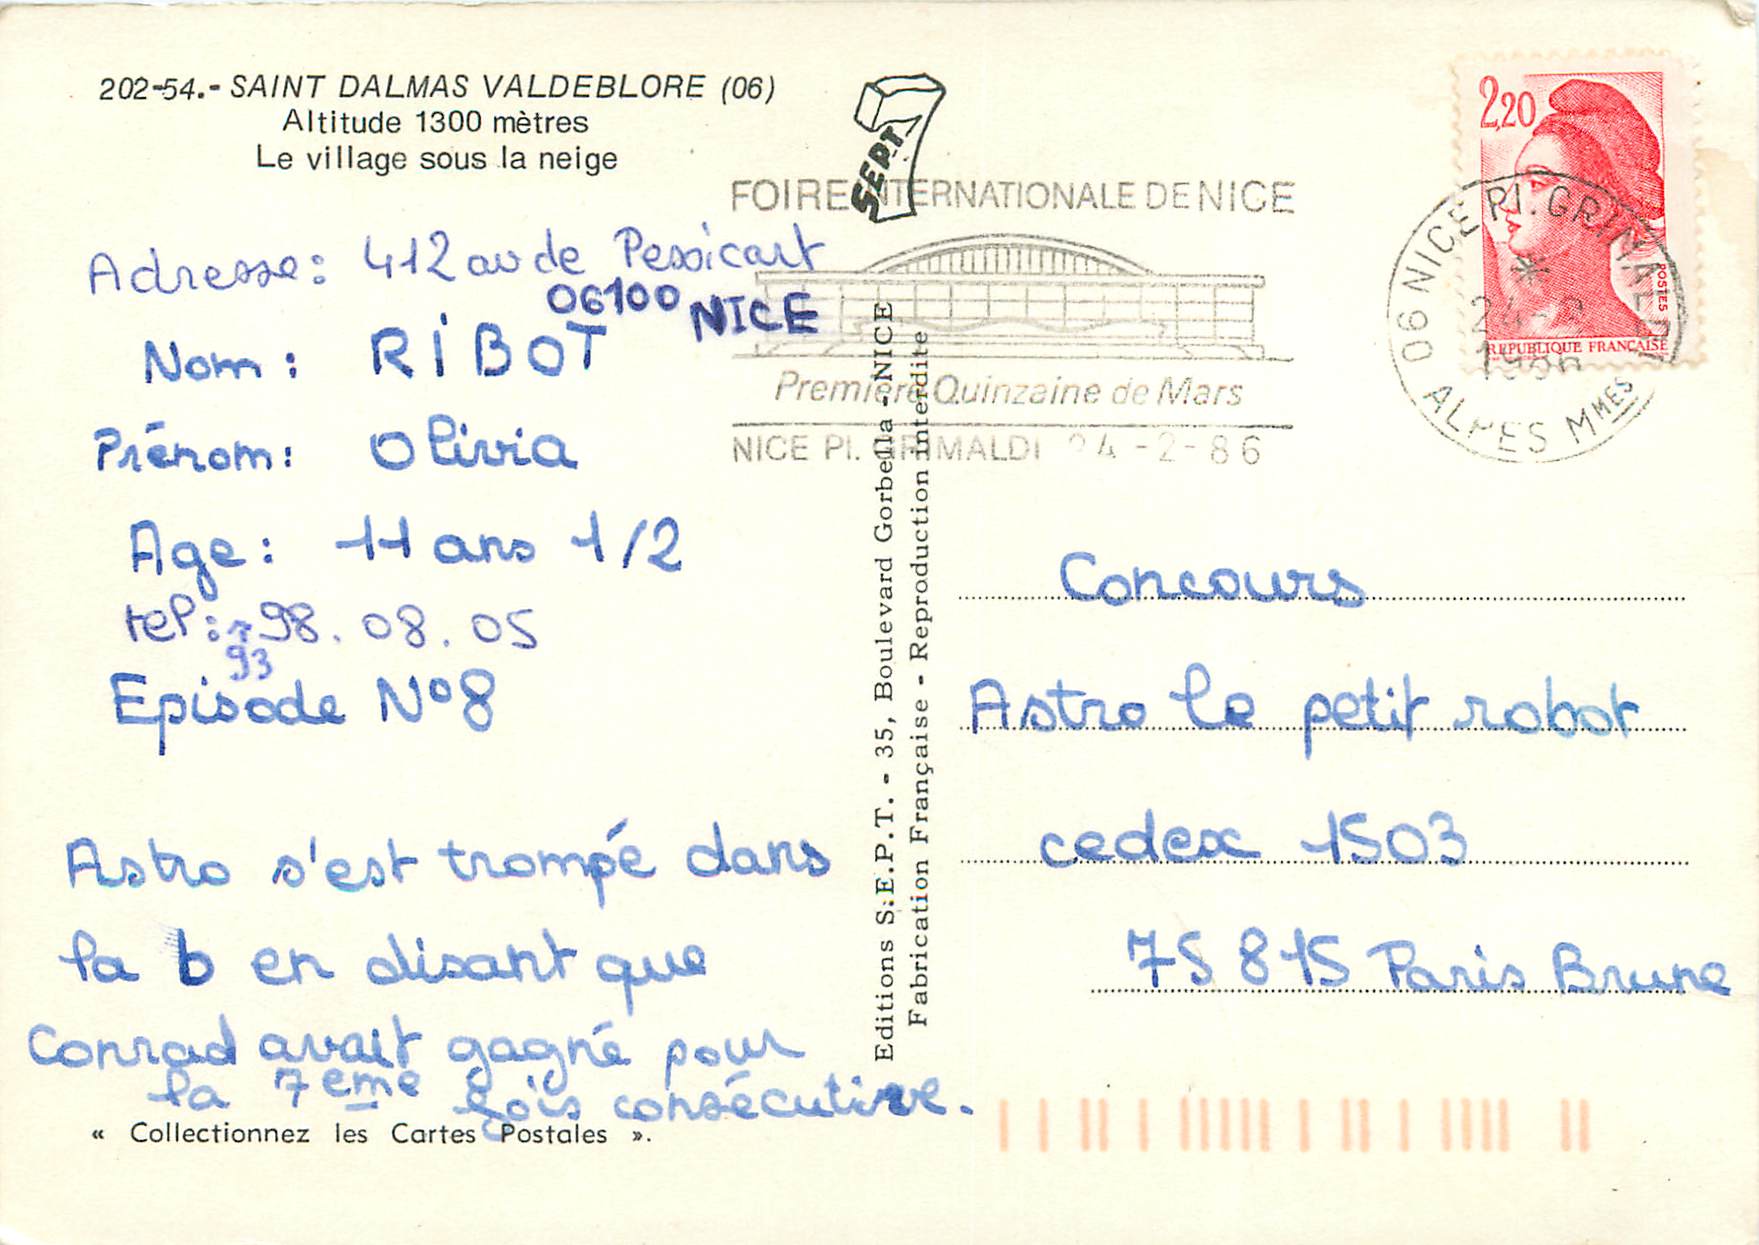 202-54.- SAINT DALMAS VALDEBLORE (06)
Altitude 1300 mètres
Le village sous la neige
SEPT
FOIRE INTERNATIONALE DE NICE
Première Quinzaine de Mars
NICE Pl. GRIMALDI 24-2-86
2,20
POSTES
REPUBLIQUE FRANÇAISE
06 NICE Pl. GRIMALDI
*
24-2
1986
ALPES Mmes
Adresse: 412 av de Pessicart
06100 NICE
Nom: RIBOT
Prénom: Olivia
Age: 11 ans 1/2
tel: 98.08.05
93
Episode N°8
Astro s'est trompé dans
la b en disant que
Conrad avait gagné pour
la 7eme fois consécutive.
« Collectionnez les Cartes Postales ».
Editions S.E.P.T. - 35, Boulevard Gorbella - NICE
Fabrication Française - Reproduction interdite
Concours
Astro le petit robot
cedex 1503
75 815 Paris Brune